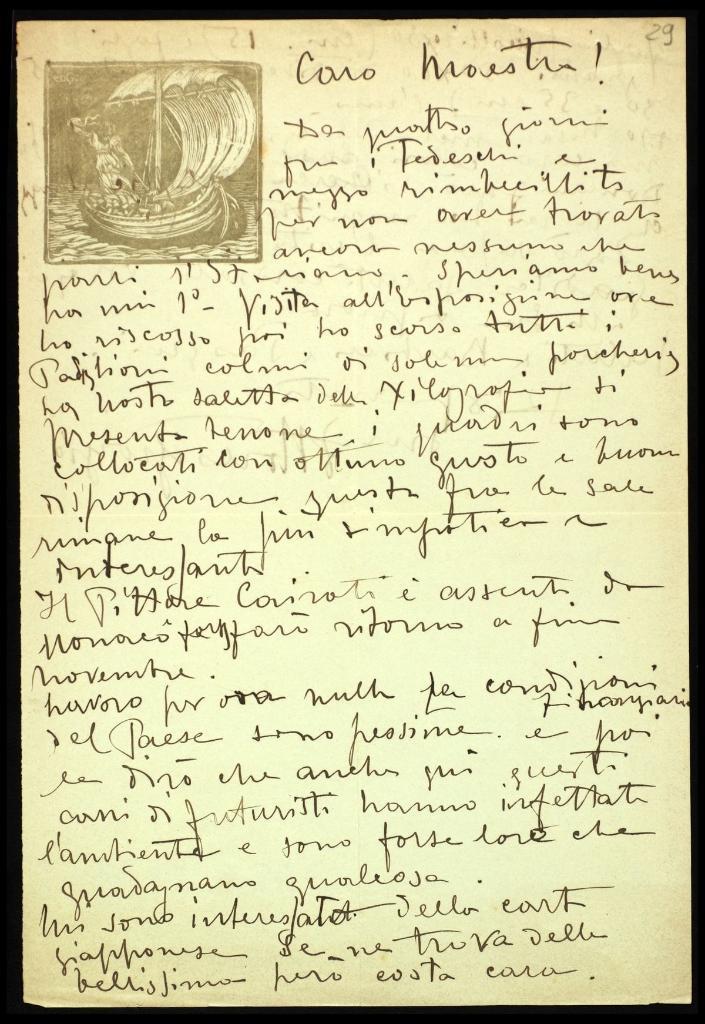 29
Caro Maestro!
Da quattro giorni
fra i Tedeschi e
mezzo rimbecillito
per non aver trovato
ancora nessuno che
parli l'Italiano. Speriamo bene
ho una 1ª Visita all'Esposizione ove
ho riscosso poi ho scorso tutti i
Padiglioni colmi di solenni porcherie
La nostra saletta della Xilografia si
presenta benone i quadri sono
collocati con ottimo gusto e buona
disposizione questa fra le sale
rimane la più simpatica e
interessante
Il Pittore Cairati è assente da
Monaco farà ritorno a fine
novembre.
Lavoro per ora nulla le condizioni
finanziarie
del Paese sono pessime. e poi
le dirò che anche quì questi
cani di futuristi hanno infettato
l'ambiente e sono forse loro che
guadagnano qualcosa.
Mi sono interessato della carta
giapponese Se ne trova della
bellissima però costa cara.